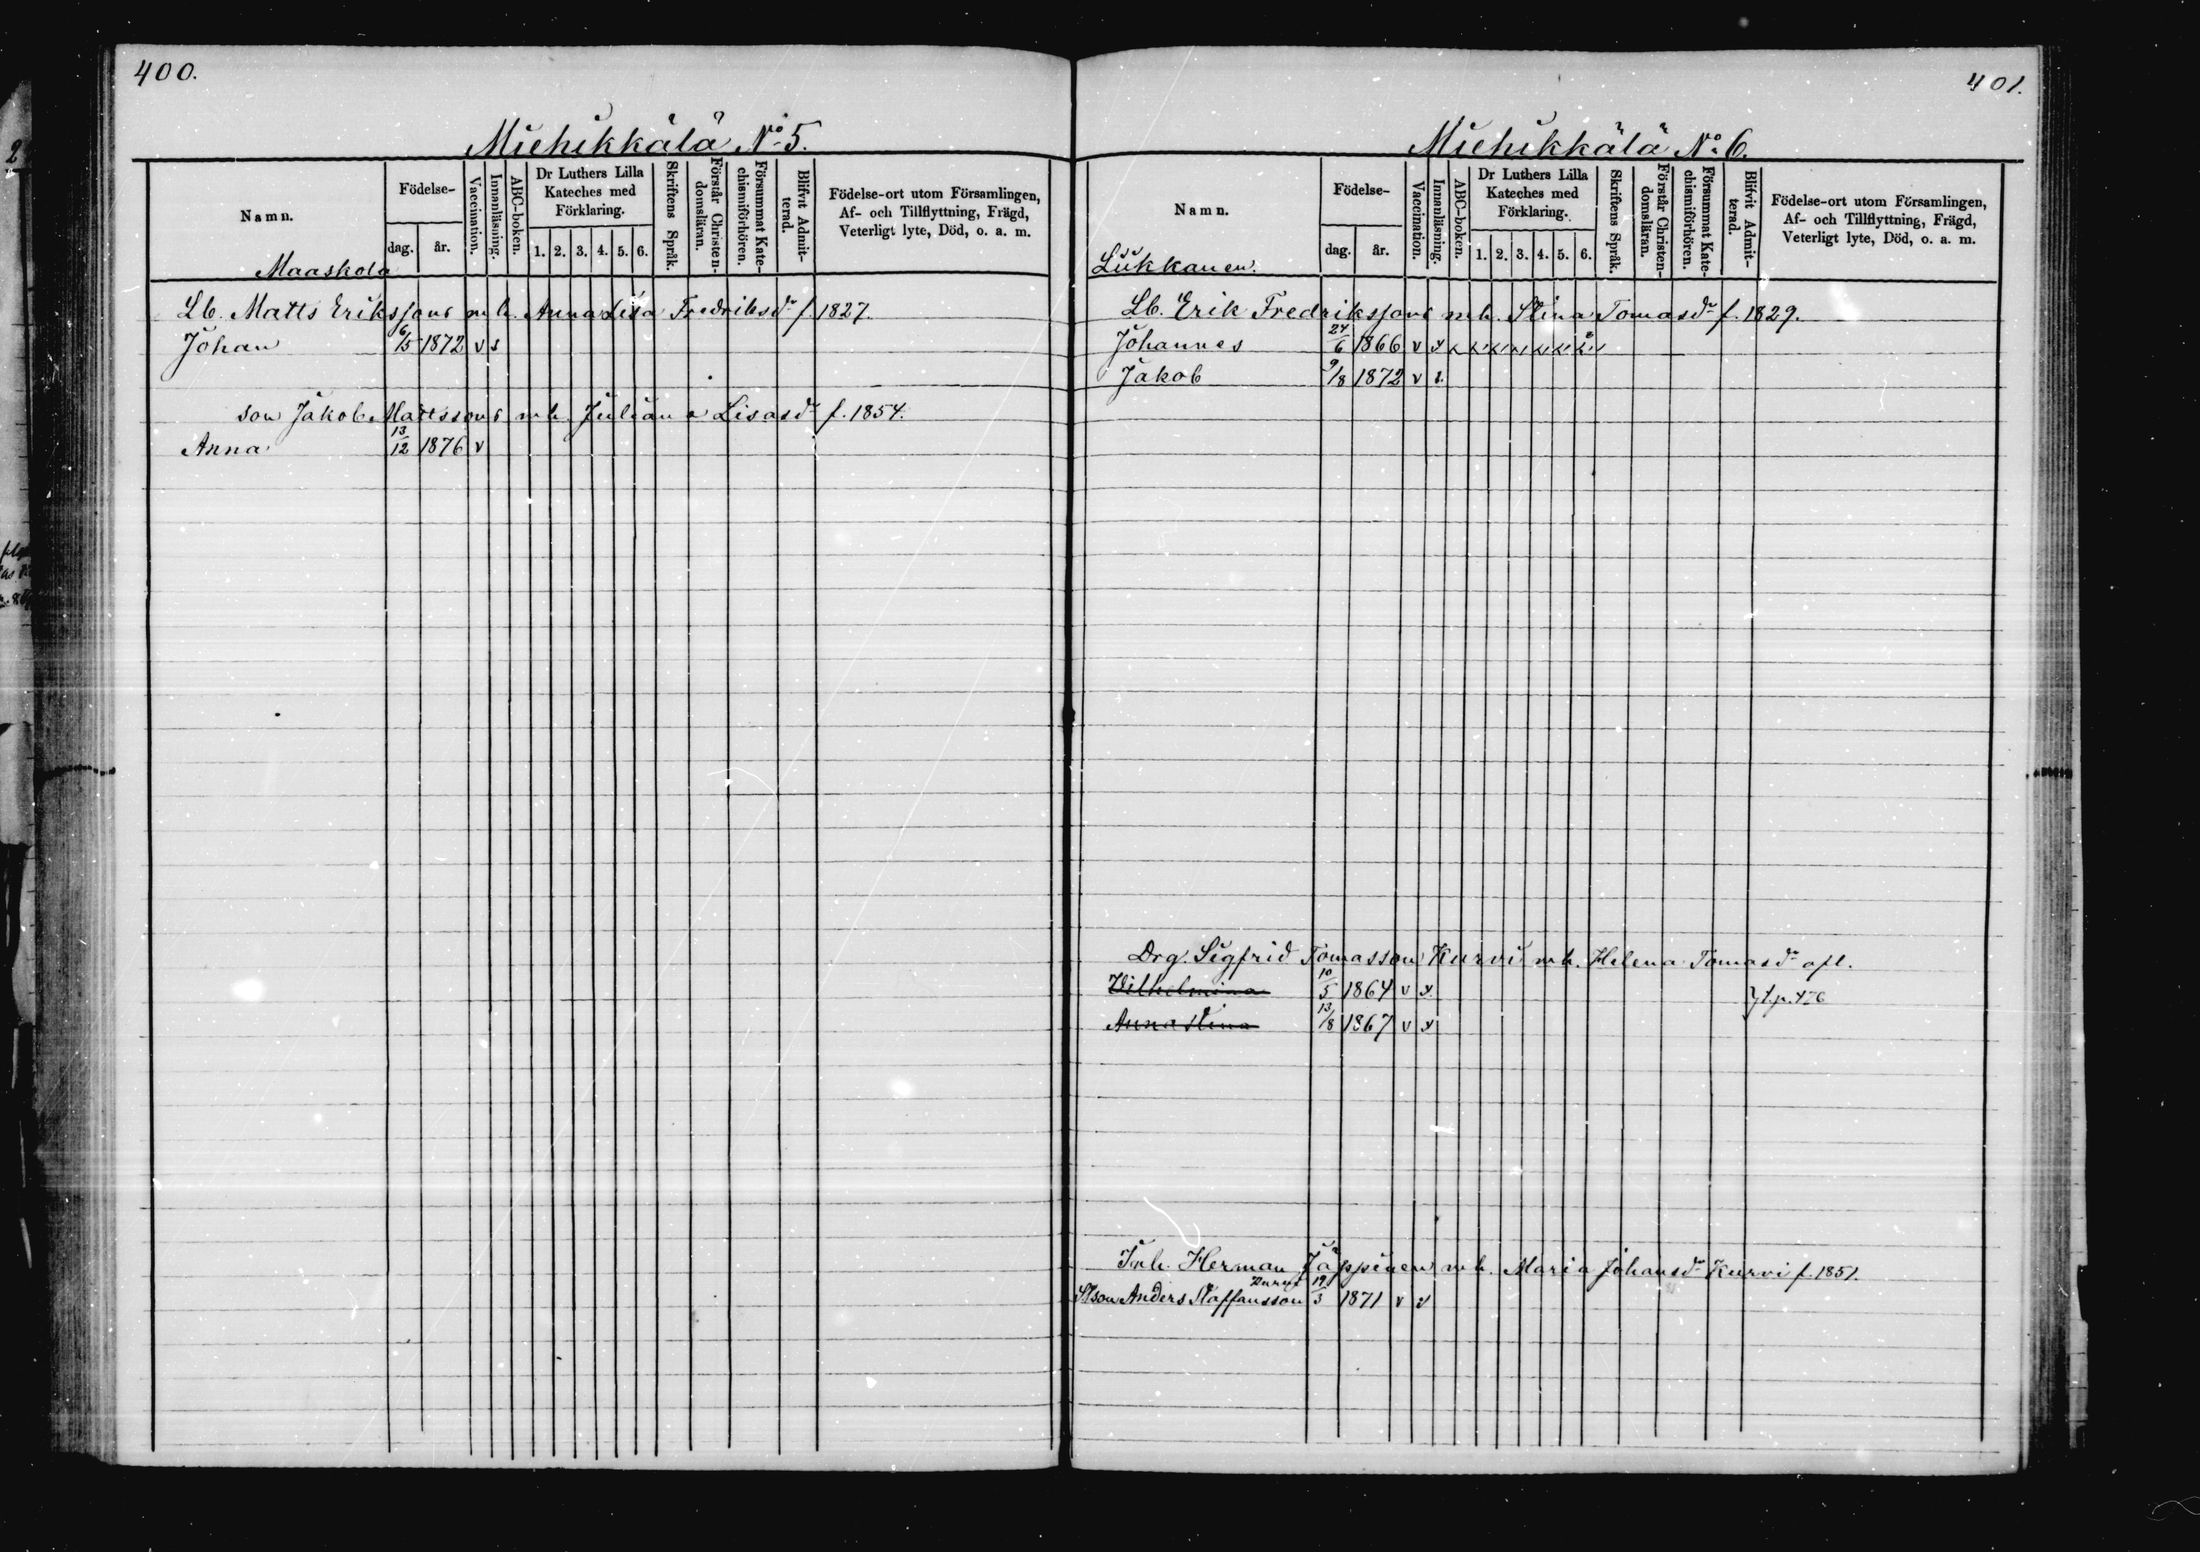 400.
Miehikkälä No 5.
Namn.
Födelse-
dag.
år.
Vaccination.
Innanläsning.
ABC-boken.
Dr Luthers Lilla
Kateches med
Förklaring.
1. 2. 3. 4. 5. 6.
Skriftens Språk.
Förstår Christen-
domsläran.
Försummat Kate-
chismiförhören.
Blifvit Admit-
terad.
Födelse-ort utom Församlingen,
Af- och Tillflyttning, Frägd,
Veterligt lyte, Död, o. a. m.
Maaskola
Lb. Matts Erikssons m h. Anna Lisa Fredriksdr f. 1827.
Johan 6/5 1872 v s
son Jakob Mattssons m h. Juliana Lisasdr f. 1854.
Anna 13/12 1876 v
401.
Miehikkälä No 6.
Namn.
Födelse-
dag.
år.
Vaccination.
Innanläsning.
ABC-boken.
Dr Luthers Lilla
Kateches med
Förklaring.
1. 2. 3. 4. 5. 6.
Skriftens Språk.
Förstår Christen-
domsläran.
Försummat Kate-
chismiförhören.
Blifvit Admit-
terad.
Födelse-ort utom Församlingen,
Af- och Tillflyttning, Frägd,
Veterligt lyte, Död, o. a. m.
Lukkanen.
Lb. Erik Fredrikssons m h. Stina Tomasdr f. 1829.
Johannes 24/6 1866 v x
Jakob 9/8 1872 v s.
Drg. Sigfrid Tomasson Kurvi m h. Helena Tomasdr afl.
Wilhelmina 10/5 1864 v x
Anna Stina 13/8 1867 v x
Inh. Herman Jäppinen m h. Maria Johansdr Kurvi f. 1851.
Stson Anders Staffansson 19/3 1871 v x